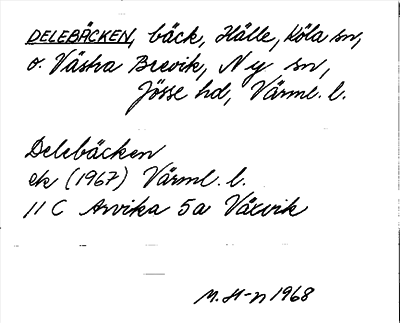 DELEBÄCKEN, bäck, Hälle, Köla sn,
o. Västra Brevik, Ny sn,
Jösse hd, Värml. l.
Delebäcken
ek (1967) Värml. l.
11 C Arvika 5a Växvik
M. H-n 1968